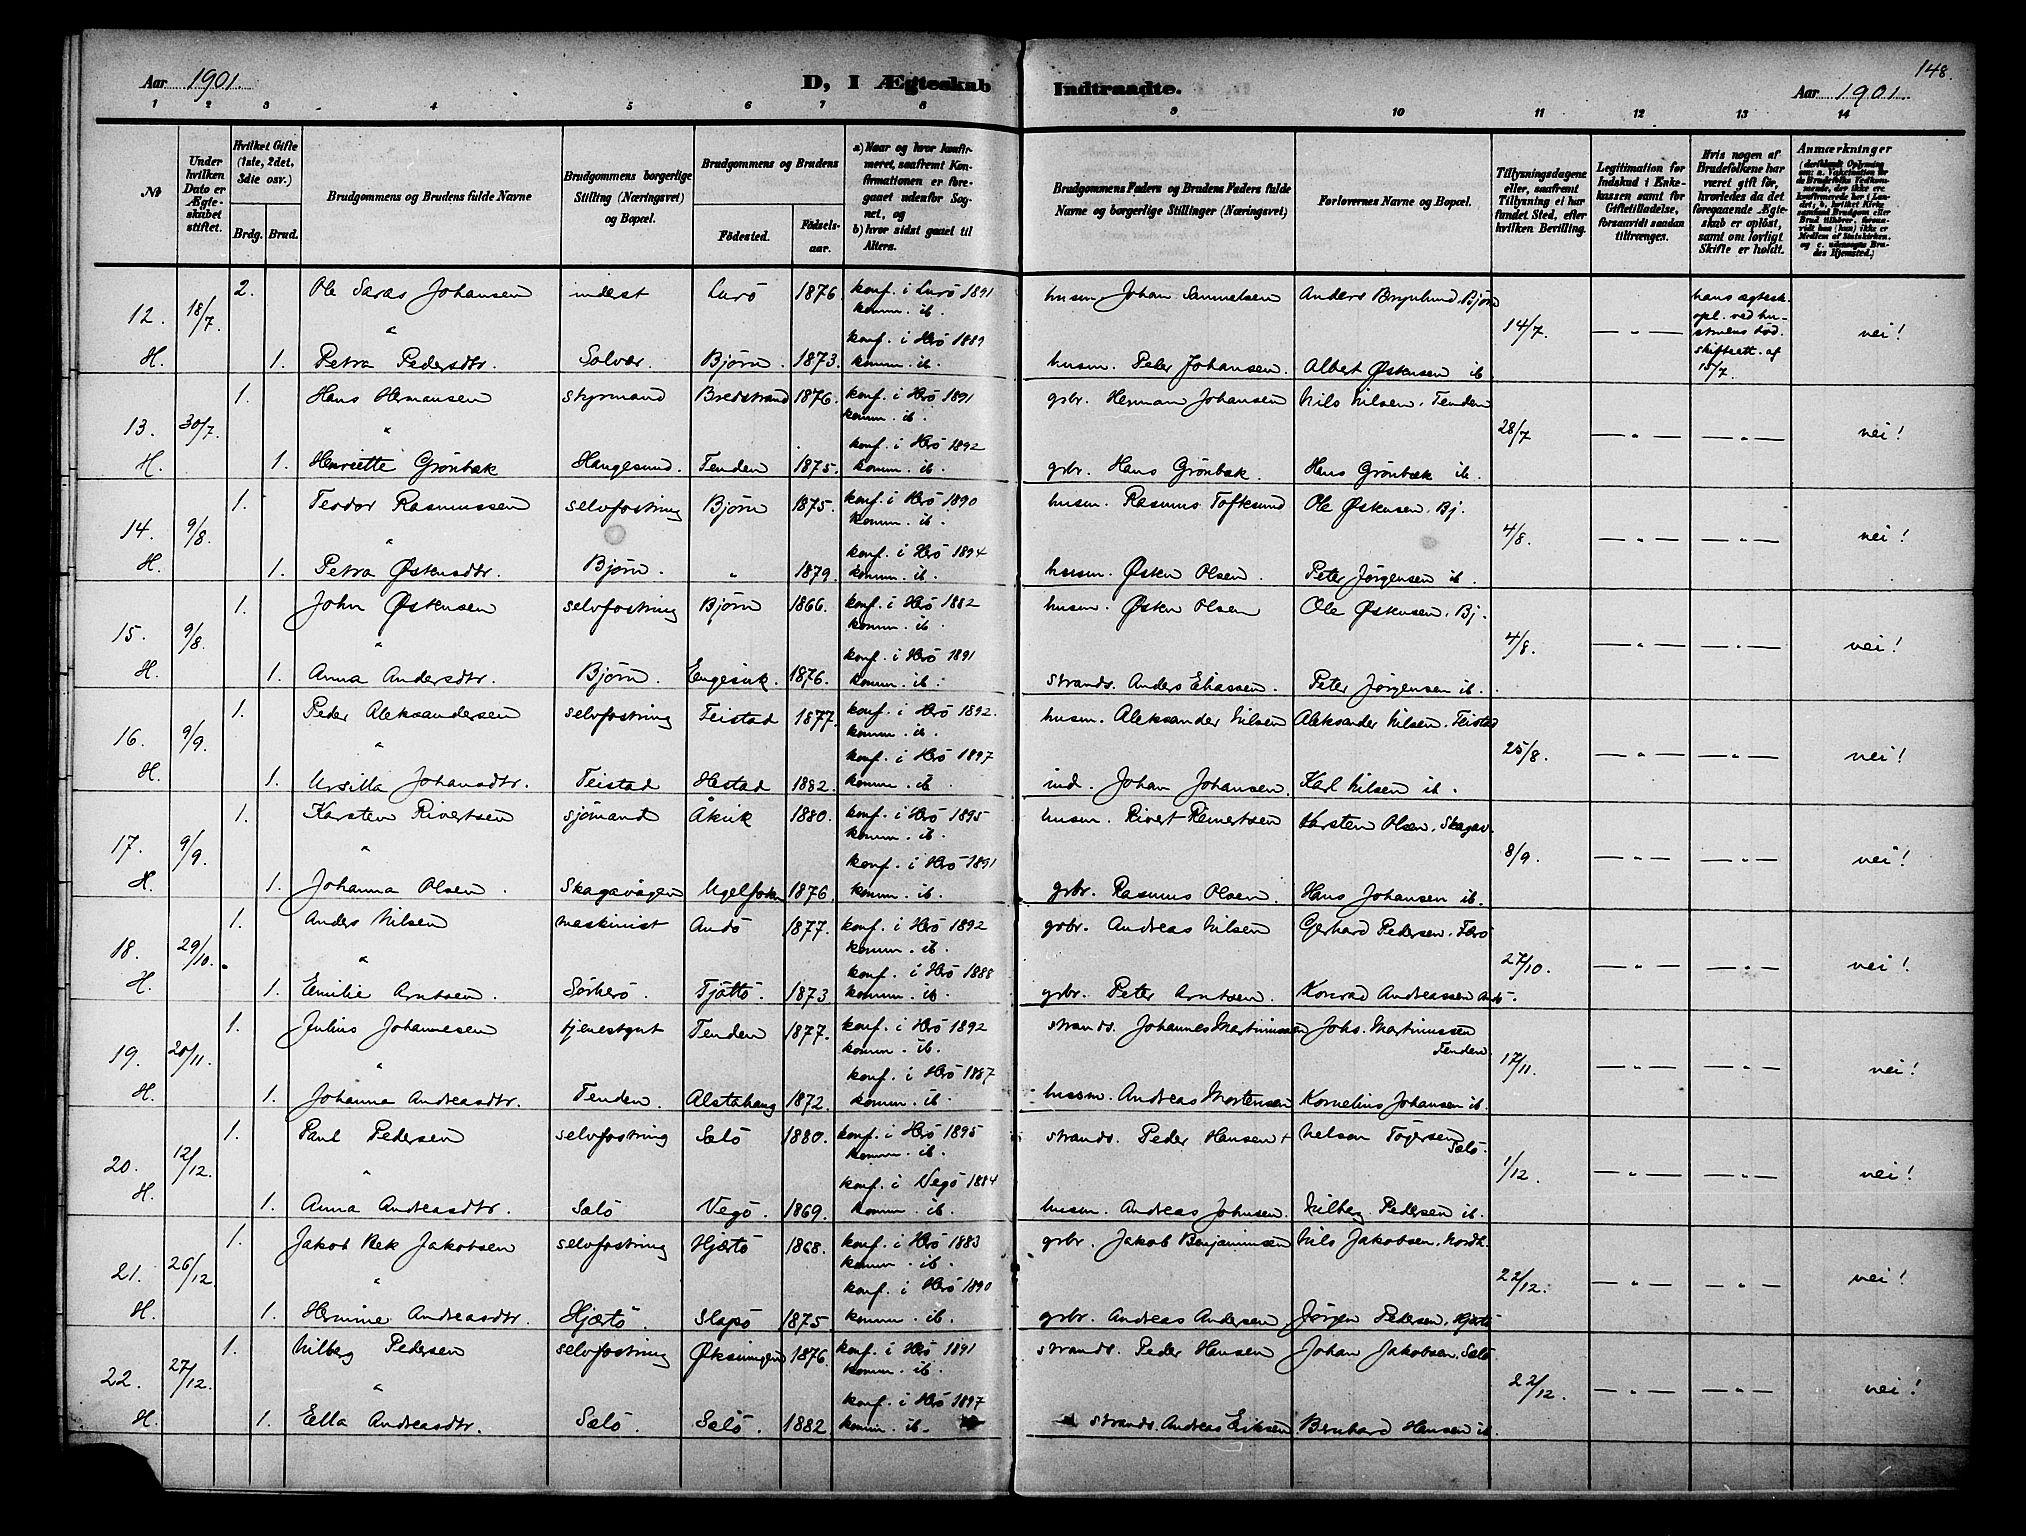 148.
Aar 1901. D, I Ægteskab Indtraadte. Aar 1901.
1 2 3 4 5 6 7 8 9 10 11 12 13 14
№
Under hvilken Dato er Ægteskabet stiftet.
Hvilket Gifte (1ste, 2det, 3die osv.)
Brdg. Brud.
Brudgommens og Brudens fulde Navne
Brudgommens borgerlige Stilling (Næringsvei) og Bopæl.
Brudgommens og Brudens
Födested. Födselsaar.
a) Naar og hvor konfirmeret, saafremt Konfirmationen er foregaaet udenfor Sognet, og
b) hvor sidst gaaet til Alters.
Brudgommens Faders og Brudens Faders fulde Navne og borgerlige Stillinger (Næringsvei)
Forlovernes Navne og Bopæl.
Tillysningsdagene eller, saafremt Tillysning ei har fundet Sted, efter hvilken Bevilling.
Legitimation for Indskud i Enkekassen samt for Giftetilladelse, forsaavidt saadan tiltrænges.
Hvis nogen af Brudefolkene har været gift før, hvorledes da det foregaaende Ægteskab er oplöst, samt om lovligt Skifte er holdt.
Anmærkninger
12. 18/7. 2. Ole Saras Johansen inderst Lurö 1876 konf. i Lurö 1891 komm. ib. husm. Johan Samuelsen Anders Brynlund, Bjørn 14/7. — „ — hans ægtesk. opl. ved hustruens död. skifteatt. af 15/7. nei!
H. „ 1. Petra Pedersdtr. Solvær. Bjørn. 1873. konf. i Herö 1889 komm. ib. husm. Peter Johansen. Albert Østensen ib
13. 30/7. 1. Hans Hermansen styrmand Bredstrand 1876. konf. i Herö 1891 komm. ib. grbr. Herman Johansen Nils Nilsen. Tenden 28/7 — „ — — „ — nei!
H. „ 1. Henriette Grönbæk Haugesund. Tenden 1875. konf. i Herö 1892 komm. ib. grbr. Hans Grönbæk. Hans Grönbæk ib.
14. 9/8. 1. Teodor Rasmussen selvfostring Bjørn 1875. konf. i Herö 1890 komm. ib. husm. Rasmus Toftsund Ole Østensen. Bj. 4/8. — „ — — „ — nei!
H. „ 1. Petra Østensdtr. Bjørn. „ 1879. konf. i Herö 1894 komm. ib. husm. Østen Olsen. Peter Jørgensen ib.
15. 9/8. 1. John Østensen selvfostring Bjørn 1866. konf. i Herö 1882 komm. ib. husm. Østen Olsen Ole Østensen. Bj. 4/8. — „ — — „ — nei!
H. „ 1. Anna Andersdtr. Bjørn. Engesvik. 1876. konf. i Herö 1891 komm. ib. strands. Anders Eliassen. Peter Jørgensen ib.
16. 9/9. 1. Peder Aleksandersen selvfostring Teistad 1877. konf. i Herö 1892. komm. ib. husm. Aleksander Nilsen Aleksander Nilsen. Teistad 25/8. — „ — — „ — nei!
H. „ 1. Ursilla Johansdtr. Teistad Hestad 1882. konf. i Herö 1897 komm. ib. ind. Johan Johansen. Karl Nilsen ib.
17. 9/9. 1. Karsten Rivertsen sjömand Åkvik 1880. konf. i Herö 1895 komm. ib. husm. Rivert Reinertsen Karsten Olsen. Skagav. 8/9. — „ — — „ — nei!
H. „ 1. Johanna Olsen. Skagavågen 1876. konf. i Herö 1891 komm. ib. grbr. Rasmus Olsen. Hans Johansen ib.
18. 29/10. 1. Anders Nilsen maskinist Andö 1877. konf. i Herö 1892 komm. ib. grbr. Andreas Nilsen Gerhard Pedersen. Færö 27/10. — „ — — „ — nei!
H. „ 1. Emilie Arntsen. Sörherö. Tjöttö. 1873 konf. i Herö 1888 komm. ib. grbr. Peter Arntsen. Konrad Andreassen Andö.
19. 20/11. 1. Julius Johannesen tjenestgut Tenden 1877. konf. i Herö 1892 komm. ib. strands. Johannes Martinussen Johs. Martinussen Tenden. 17/11. — „ — — „ — nei!
H. „ 1. Johanna Andreasdtr. Tenden. Alstahaug 1872. konf. i Herö 1887 komm. ib. husm. Andreas Mortensen Kornelius Johansen ib.
20. 12/12. 1. Paul Pedersen selvfostring Sælö 1880. konf. i Herö 1895 komm. ib. strands. Peder Hansen + Nelson Töjersen Sælö. 1/12. — „ — — „ — nei!
H. „ 1. Anna Andreasdtr. Sælö Vegö. 1869. konf. i Vegö 1884 komm. ib. husm. Andreas Johnsen. Nilberg Pedersen ib.
21. 26/12. 1. Jakob Bek Jakobsen selvfostring Hjærtö 1868. konf. i Herö 1883 komm. ib. grbr. Jakob Benjaminsen Nils Jakobsen. Nordh. 22/12. — „ — — „ — nei!
H. „ 1. Hermine Andreasdtr. Hjærtö. Slapö 1875 konf. i Herö 1890 komm. ib. grbr. Andreas Andersen. Jörgen Pedersen. Hjærtö
22. 27/12. 1. Nilberg Pedersen selvfostring Øksningen 1876. konf. i Herö 1891 komm. ib. strands. Peder Hansen Johan Jakobsen. Sælö. 22/12. — „ — — „ — nei!
H. „ 1. Ella Andreasdtr. Sælö. Sælö. 1882 konf. i Herö 1897 komm. ib. strands. Andreas Eriksen Bernhard Hansen ib.